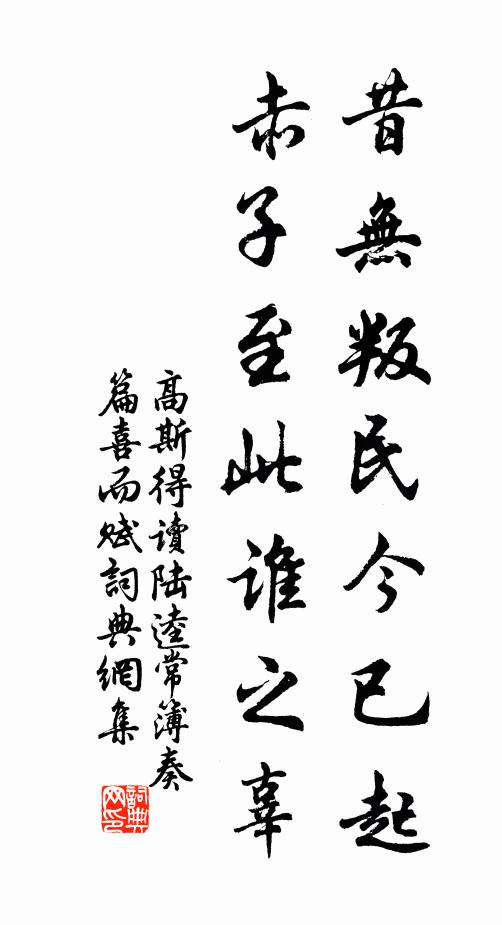 昔無叛民今已起
赤子至此誰之辜
高斯得讀陸逵常簿奏
篇喜而賦詞典網集
詞典網印